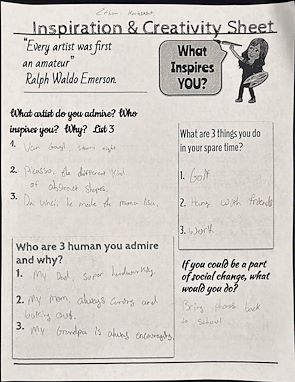 Inspiration & Creativity Sheet
"Every artist was first
an amateur"
Ralph Waldo Emerson.
What
Inspires
YOU?
What artist do you admire? Who
inspires you? Why? List 3
1. Van Gogh, starry night
2. Picasso, the different kind
of abstract shapes.
3. Da Vinci, he made the mona lisa.
What are 3 things you do
in your spare time?
1. Golf
2. Hang with friends
3. Work
Who are 3 human you admire
and why?
1. My Dad, super hardworking.
2. My mom, always caring and
looking out.
3. My Grandpa is always encouraging
If you could be a part
of social change, what
would you do?
Bring phones back
to school